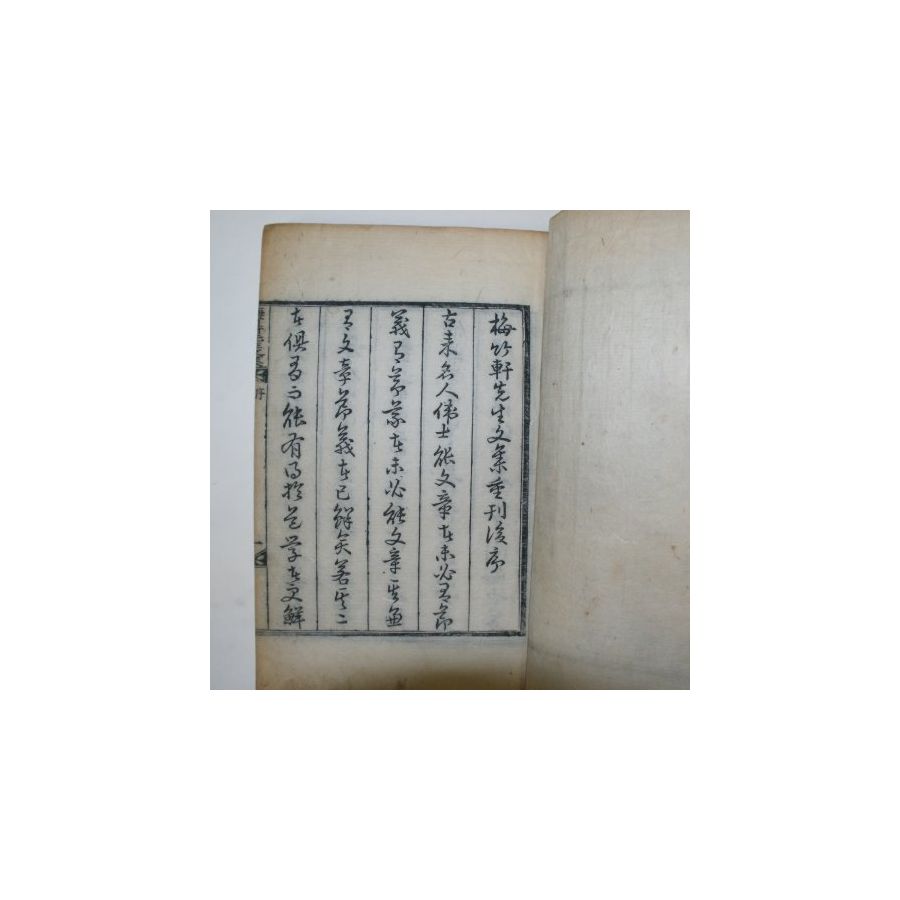 梅竹軒先生文集重刊後序
古来名人偉士能文章者未必有節
義有節義者未必能文章其兼
有文章節義者已鮮矣若其二
者俱有而能有得於道学者又鮮
序